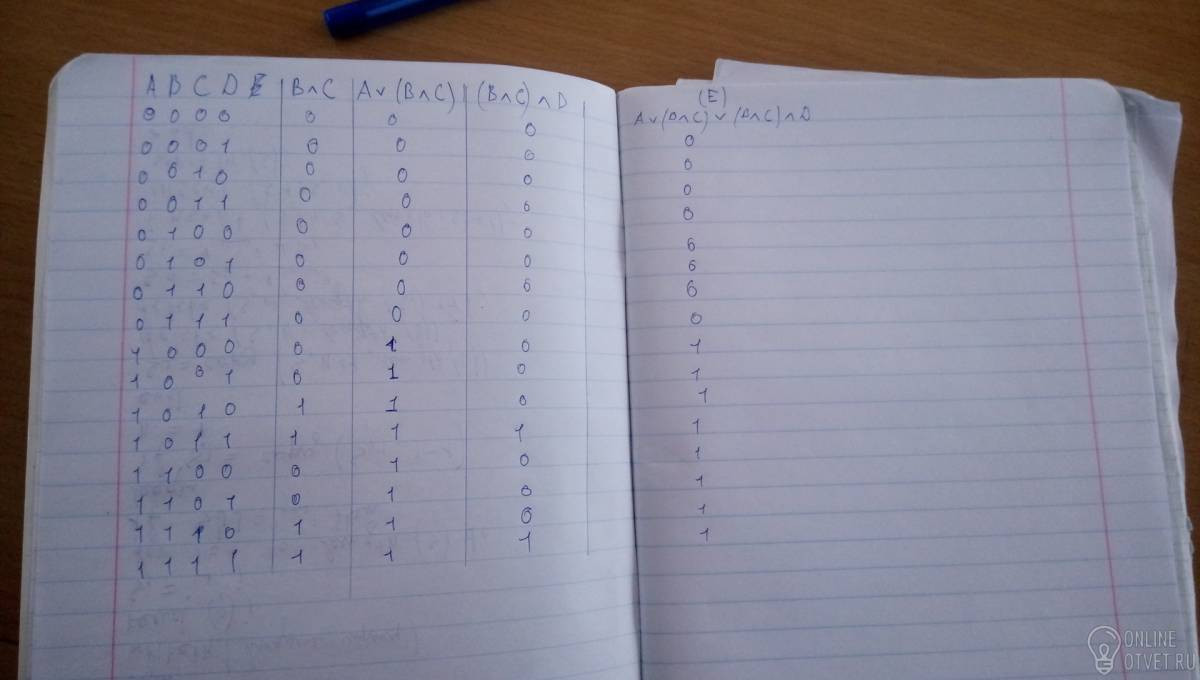 A B C D E B∧C A∨(B∧C) (B∧C)∧D
0 0 0 0 0 0 0
0 0 0 1 0 0 0
0 0 1 0 0 0 0
0 0 1 1 0 0 0
0 1 0 0 0 0 0
0 1 0 1 0 0 0
0 1 1 0 0 0 0
0 1 1 1 0 0 0
1 0 0 0 0 1 0
1 0 0 1 0 1 0
1 0 1 0 1 1 0
1 0 1 1 1 1 1
1 1 0 0 0 1 0
1 1 0 1 0 1 0
1 1 1 0 1 1 0
1 1 1 1 1 1 1
(E)
A∨(B∧C)∨(B∧C)∧D
0
0
0
0
0
0
0
0
1
1
1
1
1
1
1
1
ONLINE
OTVET.RU